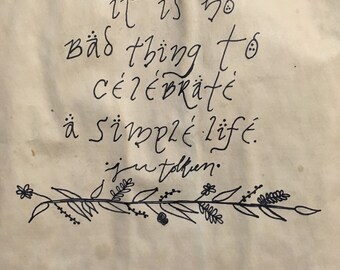 it is no
bad thing to
célébraté
a simplé lifé.
jrr tolkien.